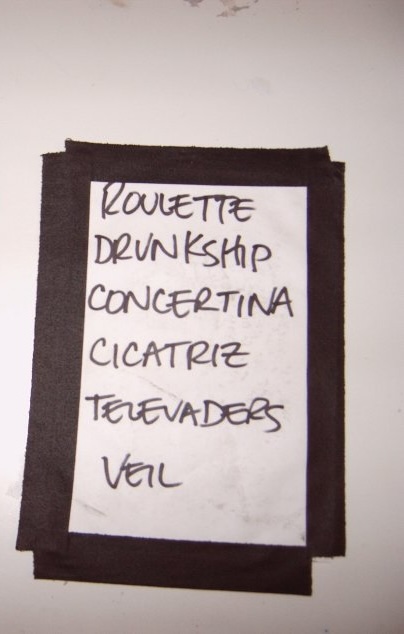 ROULETTE
DRUNKSHIP
CONCERTINA
CICATRIZ
TELEVADERS
VEIL